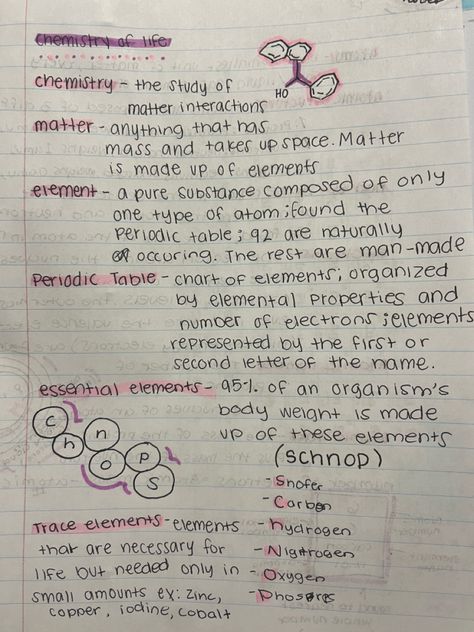 chemistry of life
HO
chemistry - the study of
matter interactions
matter - anything that has
mass and takes up space. Matter
is made up of elements
element - a pure substance composed of only
one type of atom; found the
Periodic table; 92 are naturally
occuring. The rest are man-made
Periodic Table - chart of elements; organized
by elemental properties and
number of electrons; elements
represented by the first or
second letter of the name.
essential elements - 95% of an organism's
body weight is made
up of these elements
(SCHNOP)
C
h
n
O
P
S
- Carbon
- hydrogen
- Oxygen
Trace elements - elements
that are necessary for
life but needed only in
small amounts ex: Zinc,
copper, iodine, cobalt